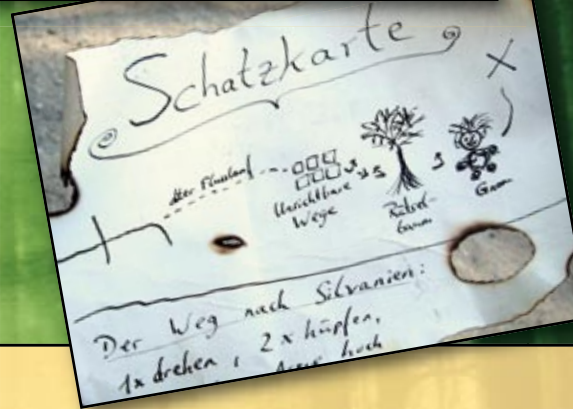 Schatzkarte
alter Flusslauf
Unsichtbare
Wege
Rätsel-
baum
Der Weg nach Silvanien:
1x drehen, 2x hüpfen,
hoch